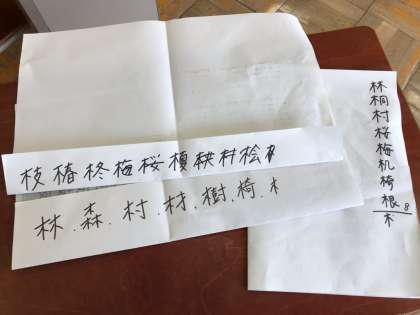 枝椿柊梅桜榎枝村桧
林.森.村.材.樹.椅.木
林
桐
村
桜
梅
机
椅
根 8
木